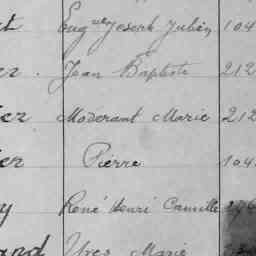 Eug Joseph Julien 104
Jean Baptiste 212
Modérant Marie 212
Pierre 104
René Henri Camille
Yves Marie